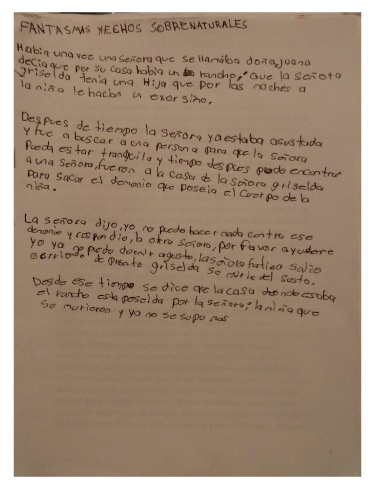 FANTASMAS Y ECHOS SOBRENATURALES
Habia una vez una señora que se llamaba doña, juana
decia que por su casa habia un rancho, que la señora
griselda tenia una Hija que por las noches a
la niña le hacian un exorsismo.
Despues de tiempo la señora ya estaba asustada
y fue a buscar a una persona para que la señora
Pueda estar tranquila y tiempo despues pudo encontrar
a una señora, fueron a la casa de la señora griselda
para sacar el demonio que poseia el cuerpo de la
niña.
La señora dijo, yo no puedo hacer nada contra ese
demonio y respondio, la otra señora, por favor ayudeme
yo ya no puedo dormir agusto, la señora fatima salio
corriendo de pronto griselda se murio del susto.
Desde ese tiempo se dice que la casa donde estaba
el rancho esta poseida por la señora, la niña que
se murieron y ya no se supo mas